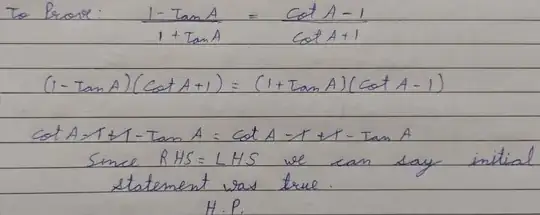 To Prove: 1 - Tan A / 1 + Tan A = Cot A - 1 / Cot A + 1
(1 - Tan A)(Cot A + 1) = (1 + Tan A)(Cot A - 1)
Cot A - 1 + 1 - Tan A = Cot A - 1 + 1 - Tan A
Since RHS = LHS we can say initial
statement was true.
H.P.